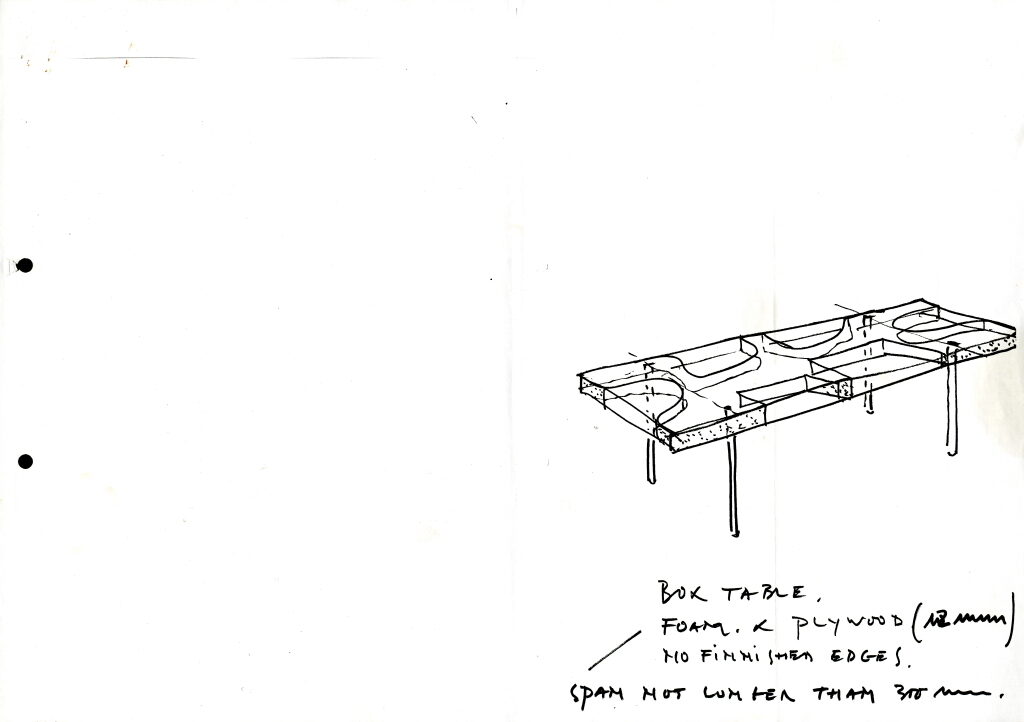 BOX TABLE.
FOAM. & PLYWOOD (12 mm)
NO FINNISHED EDGES.
SPAN NOT LONGER THAN 300 mm.